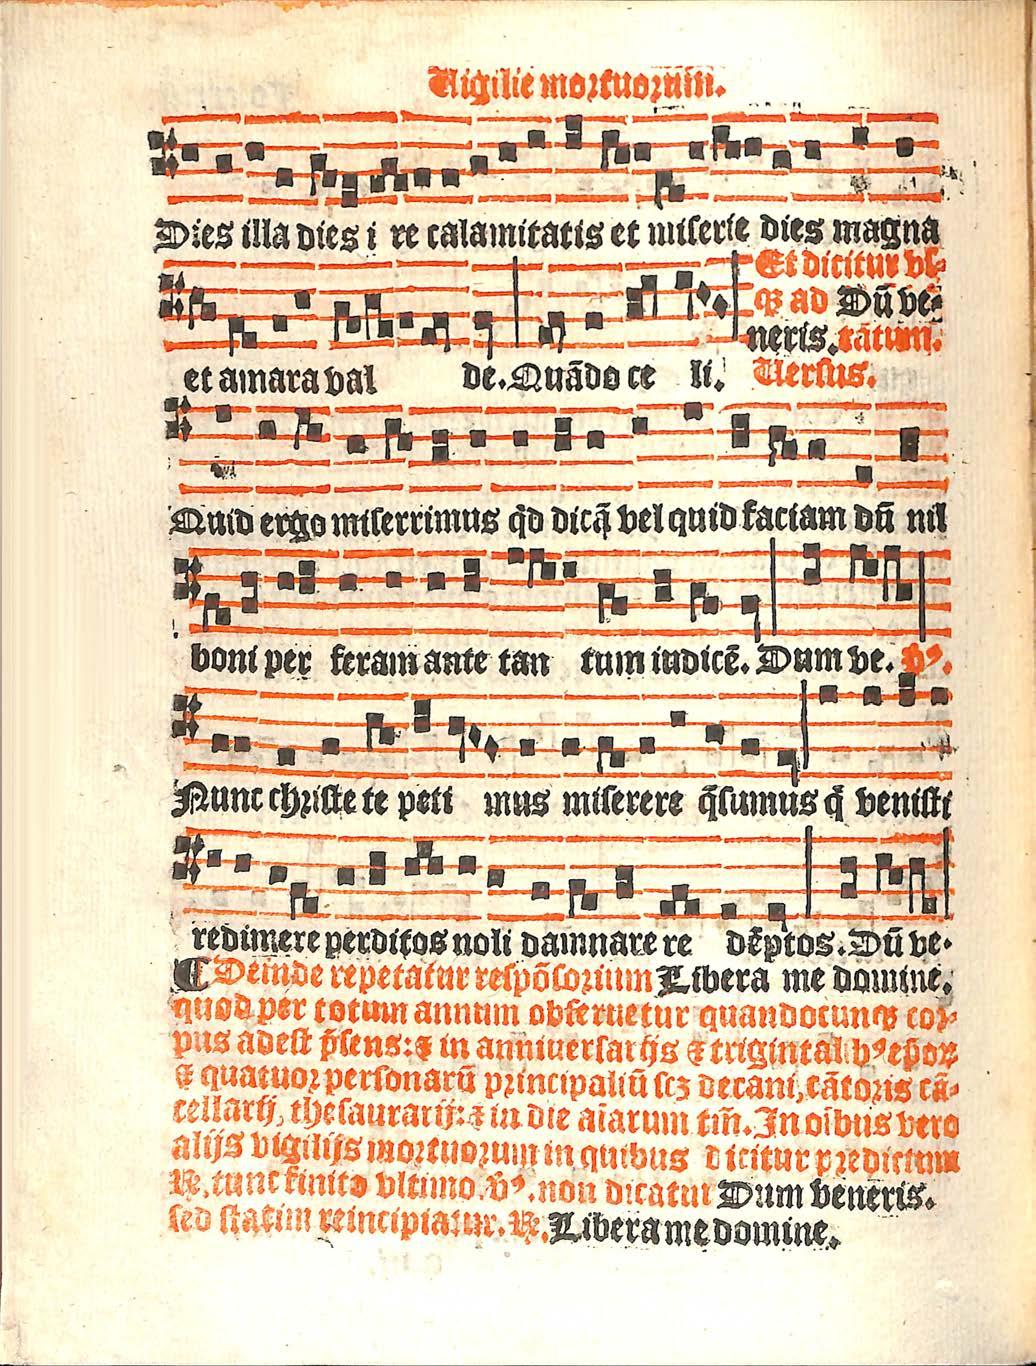 Vigilie mortuorum.
Dies illa dies i re calamitatis et miserie dies magna
Et dicitur vs-
qȝ ad Dū ve-
neris. tātum.
et amara val de. Quādo ce li. Versus.
Quid ergo miserrimus qd̄ dicā vel quid faciam dū nil
boni per feram ante tan tum iudicē. Dum ve. v̄ꝰ.
Nunc christe te peti mus miserere q̄sumus q̄ venisti
redimere perditos noli damnare re dēptos. Dū ve.
¶ Deinde repetatur respōsorium Libera me domine.
quod per totum annum obseruetur quandocunqȝ cor-
pus adest p̄sens: ⁊ in anniuersarijs ⁊ trigintal hꝰ ep̄oꝝ
⁊ quatuor personarū principaliū scȝ decani, cātoris cā-
cellarij, thesaurarij: ⁊ in die aīarum tm̄. In oībus vero
alijs vigilijs mortuorum in quibus dicitur predictum
℟. tunc finito vltimo. v̄ꝰ. non dicatur Dum veneris.
sed statim reincipiatur. ℟. Libera me domine.